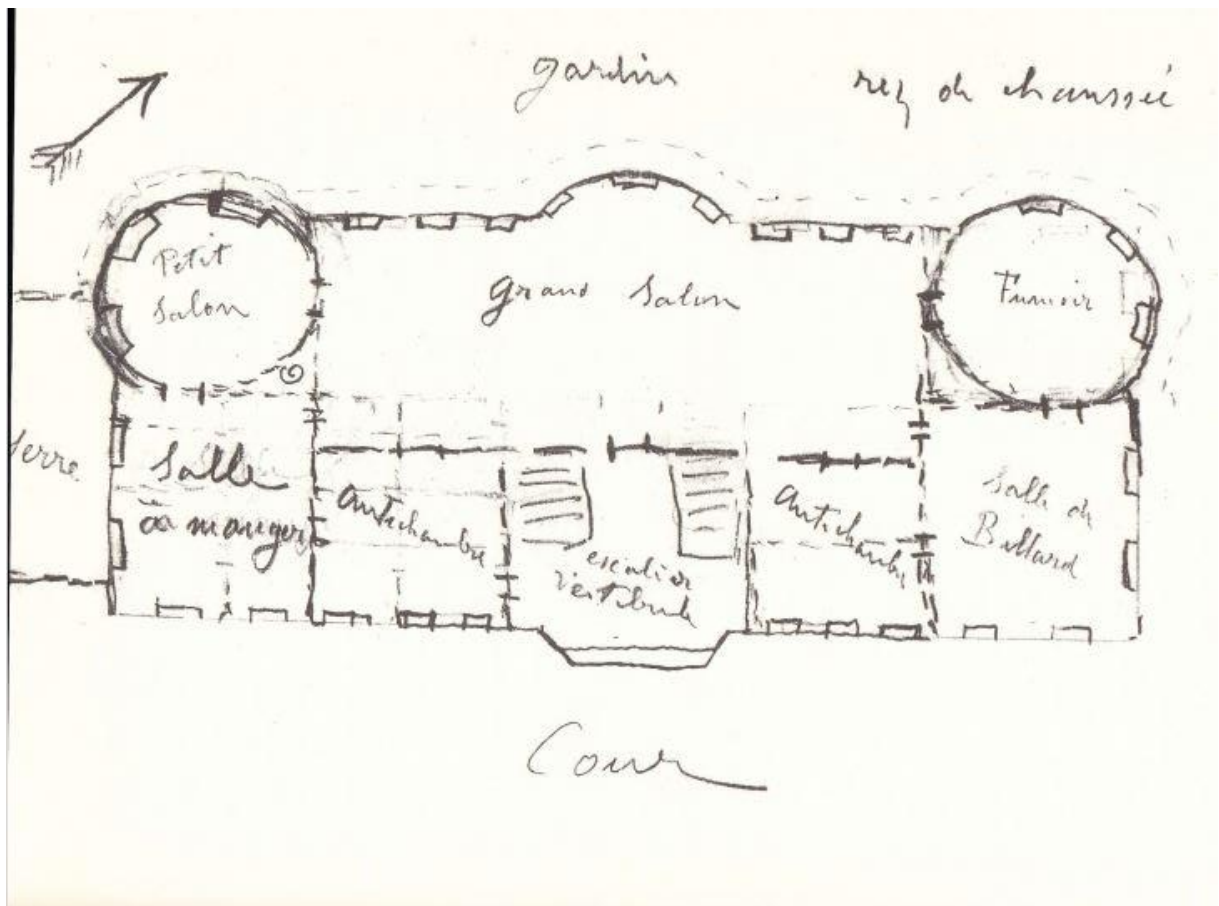 gardin
rez de chaussée
Petit
Salon
grand Salon
Fumoir
Serre
Salle
à manger
antichambre
escalier
Vestibule
antichambre
Salle de
Billard
Cour